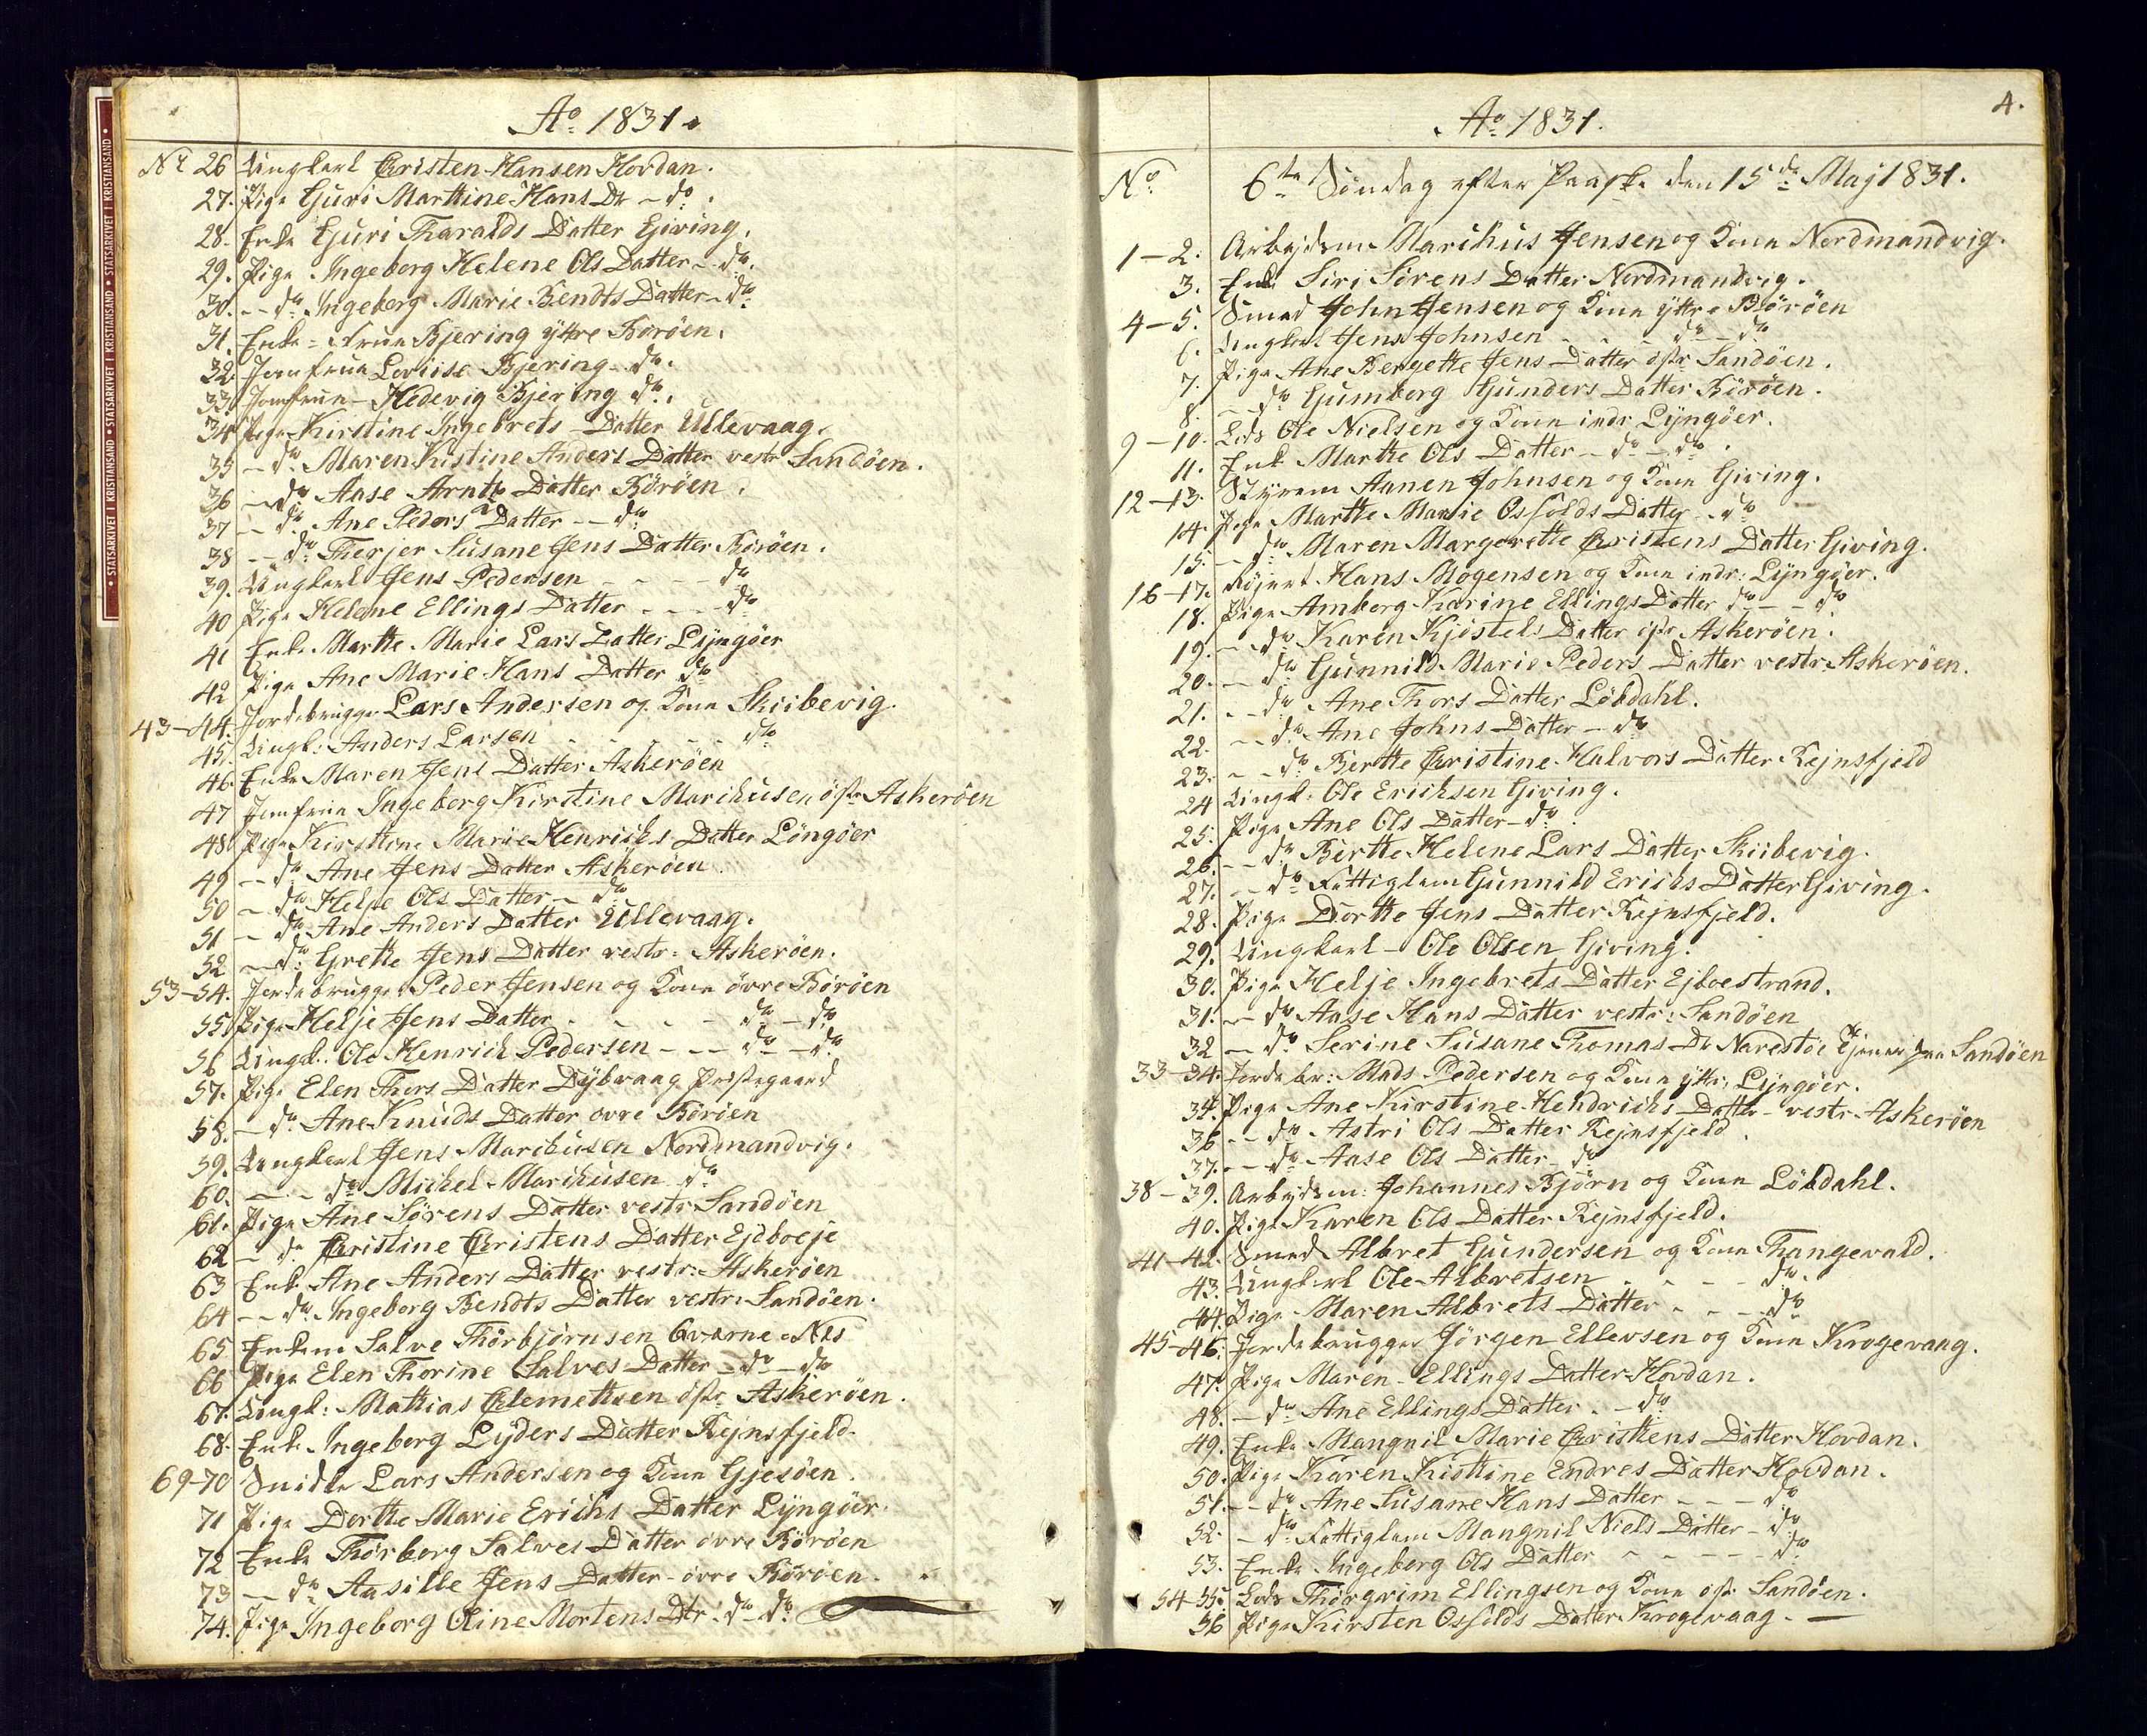 STATSARKIVET I KRISTIANSAND • STATSARKIVET I KRISTIANSAND • STATSARKIVET I KRISTIANSAND •
Ao 1831.
No 26 Ungkarl Christen Hansen Hovdan.
27. Pige Guri Marttine Hans Dtr - do.
28. Enke Guri Tharalds Datter Giving.
29. Pige Ingeborg Helene Ols Datter - do.
30. - do Ingeborg Marie Bendts Datter - do
31. Enke - Frue Bjering yttre Borøen.
32. Jomfrue Loviise Bjering do.
33. Jomfrue - Hedevig Bjering do.
34 Pige Kirstine Ingebrets Datter Ullevaag.
35 - do Maren Kistine Anders Datter vestr Sandøen.
36 - do Aase Arnts Datter Börøen.
37 - do Ane Peders Datter - - do
38 - - do Therjer Susane Jens Datter Börøen.
39. Ungkarl Jens Pedersen - - - do
40 Pige Helene Ellings Datter - - - do
41 Enke Marthe Marie Lars Datter Lyngöer
42 Pige Ane Marie Hans Datter do
43-44. Jordebrugger Lars Andersen og Kone Skiibevig.
45. Ungk: Anders Larsen - - - - do
46. Enke Maren Jens Datter Askerøen
47 Jomfrue Ingeborg Kirstine Marihusen östr Askerøen
48 Pige Kirstine Marie Henrichs Datter Löngöer
49 - do Ane Jens Datter Askerøen.
50 - do Helje Ols Datter - do
51 - do Ane Anders Datter Ullevaag.
52 - do Grette Jens Datter vestr: Askerøen.
53-54. Jordebrugger Peder Jensen og Kone övre Börøen
55. Pige Helje Jens Datter - - - do - do
56 Ungk: Ole Henrich Pedersen - - - do - do
57. Pige Elen Thors Datter Dybvaag Prestegaard
58. - do Ane Knuds Datter ovre Börøen
59. Ungkarl Jens Marihusen Nordmandvig.
60. - - do Michel Marihusen do
61. Pige Ane Sörens Datter vestr Sandøen
62 - do Christine Christens Datter Ejdboeje
63 Enke Ane Anders Datter vestr: Askerøen
64 - - do Ingeborg Bendts Datter vestr: Sandøen.
65. Enkem Salve Thorbjörnsen Qvarne-Næs
66 Pige Elen Thorine Salves Datter - do - do
67. Ungk: Mathias Clemettsen östr Askerøen.
68. Enke Ingeborg Lyders Datter Rejnsfjeld.
69-70 Snidker Lars Andersen og Kone Gjesøen.
71 Pige Dorthe Marie Erichs Datter Lyngöer.
72 Enke Thorborg Salves Datter övre Börøen
73 - do Aasille Jens Datter - övre Börøen.
74. Pige Ingeborg Oline Mortens Dtr. do do
4.
Ao 1831.
No 6te Söndag efter Paaske den 15de Maj 1831.
1-2. Arbejdsm Marihus Jensen og Kone Nordmandvig.
3. Enke Siri Sörens Datter Nordmandvig.
4-5. Smed John Jensen og Kone yttre Börøen
6. Ungkarl Jens Johnsen - - - do - do
7. Pige Ane Bergette Jens Datter östr Sandøen.
8. - - do Gumborg Gunders Datter Börøen.
9-10. Lods Ole Nielsen og Kone indr Lyngöer.
11. Enke Marthe Ols Datter - do - do.
12-13. Styrem Aanen Johnsen og Kone Giving.
14. Pige Marthe Marie Osfolds Datter - do
15. - - do Maren Margerette Christens Datter Giving.
16-17. Hans Mogensen og Kone indr: Lyngöer.
18. Pige Amberg Karine Ellings Datter do - - do
19. - - do Karen Kjöstels Datter östr Askerøen.
20. - do Gunnild Marie Peders Datter vestr Askerøen.
21. - - do Ane Thors Datter Löbdahl.
22. - - do Ane Johns Datter - do
23. - - do Berthe Christine Halvors Datter Rejnsfjeld
24 Ungk: Ole Erichsen Giving.
25. Pige Ane Ols Datter - do.
26. - - do Birthe Helene Lars Datter Skiibevig.
27. - do Fattiglem Gunnild Erichs Datter Giving.
28. Pige Dorthe Jens Datter Rejnsfjeld.
29. Ungkarl - Ole Olsen Giving.
30. Pige Helje Ingebrets Datter Ejboestrand.
31. - - do Aase Hans Datter vestr: Sandøen
32 - do Serine Susane Thomas Dtr Narestöe tjener paa Sandøen
33-34. Jordebr: Mads Pedersen og Kone yttr: Lyngöer.
34. Pige Ane Kirstine Hendrichs Datter - vestr. Askerøen
36 - - do Astri Ols Datter Rejnsfjeld.
37. - - do Aase Ols Datter do
38-39. Arbejdsm: Johannes Björn og Kone Löbdahl.
40. Pige Karen Ols Datter Rejnsfjeld.
41-42. Smed Albret Gundersen og Kone Thangevald.
43. Ungkarl Ole Albretsen - - - - do.
44. Pige Maren Albrets Datter - - - do
45-46. Jordebrugger Jörgen Ellevsen og Kone Krogevaag.
47. Pige Maren Ellings Datter Hovdan.
48. - do Ane Ellings Datter. - do
49. Enke Mangnil Marie Christens Datter Hovdan.
50. Pige Karen Kistine Endres Datter Hovdan.
51. - - do Ane Susane Hans Datter - - - do
52. - do Fattiglem Mangnil Niels Datter - do
53. Enke Ingeborg Ols Datter - - - - do
54-55. Lods Thorgrim Ellingsen og Kone östr Sandøen.
56 Pige Kirsten Osfolds Datter Krogevaag. -